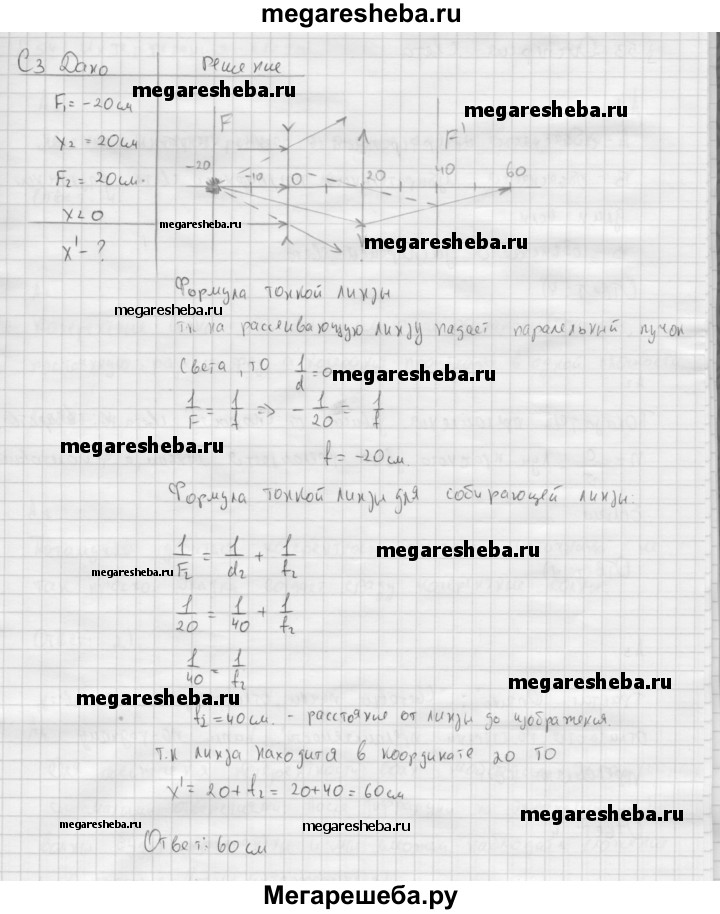 megaresheba.ru
С3 Дано Решение
megaresheba.ru
F₁ = -20 см
megaresheba.ru
F F'
x₂ = 20 см
-20 -10 0 20 40 60
F₂ = 20 см.
x < 0
megaresheba.ru
megaresheba.ru
x' - ?
Формула тонкой линзы
megaresheba.ru
т.к на рассеивающую линзу падает паралельный пучок
света, то 1/d = 0
megaresheba.ru
1/F = 1/f => -1/20 = 1/f
megaresheba.ru
f = -20 см.
Формула тонкой линзы для собирающей линзы:
1/F₂ = 1/d₂ + 1/f₂
megaresheba.ru
megaresheba.ru
1/20 = 1/40 + 1/f₂
1/40 = 1/f₂
megaresheba.ru
megaresheba.ru
f₂ = 40 см. - расстояние от линзы до изображения.
т.к линза находится в координате 20 то
x' = 20 + f₂ = 20 + 40 = 60 см
megaresheba.ru
megaresheba.ru
megaresheba.ru
Ответ: 60 см
Мегарешеба.ру